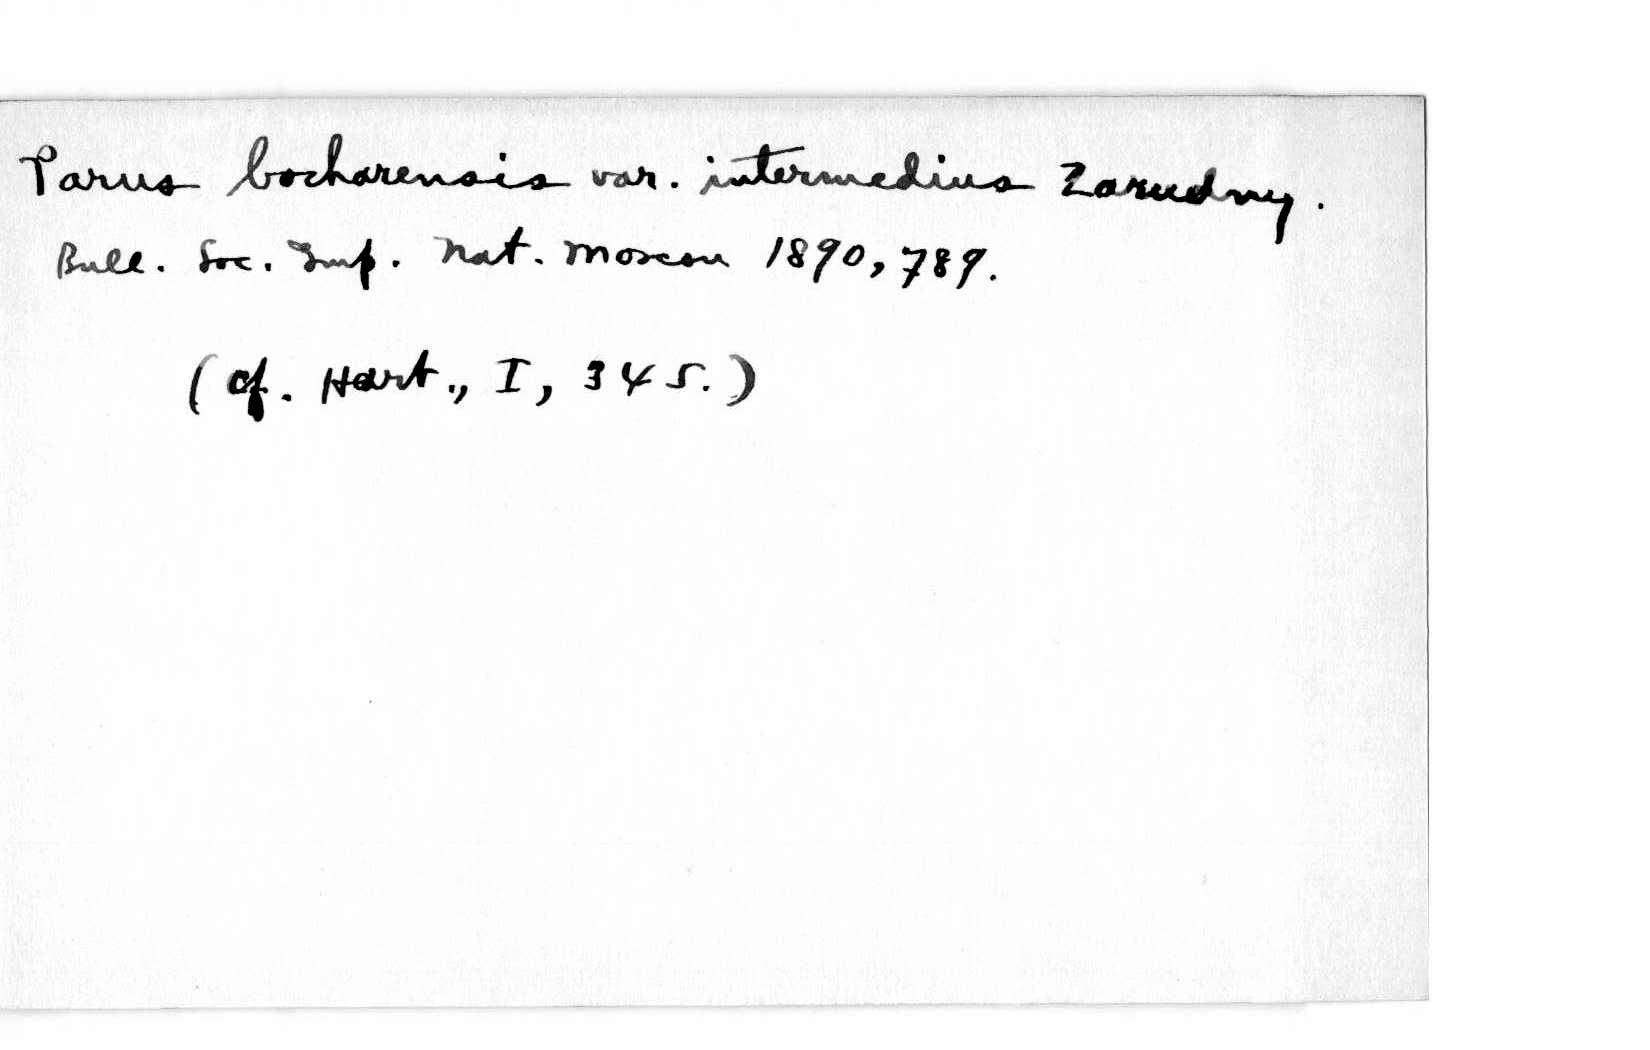 Parus bocharensis var. intermedius Zarudny.
Bull. Soc. Imp. Nat. Moscou 1890, 789.
(cf. Hart., I, 345.)